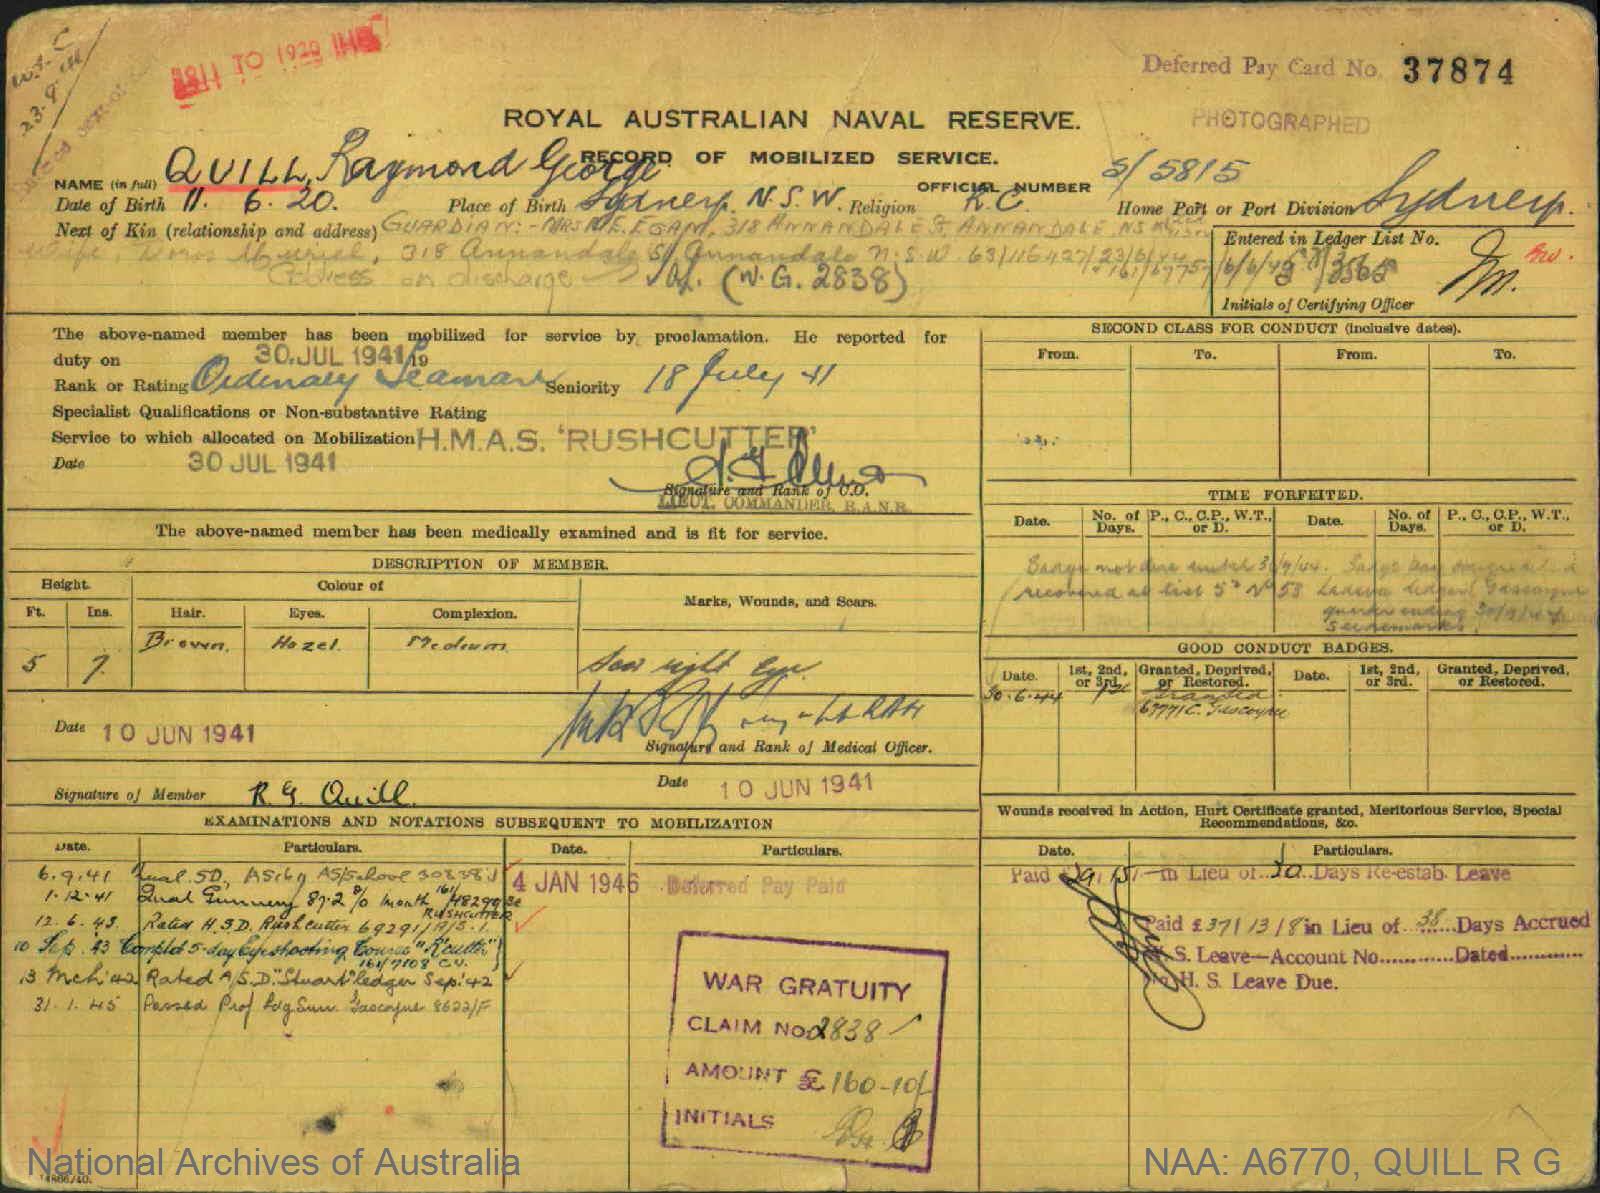 W.S.C
23.9.41
Deferred Pay Card No. 37874
PHOTOGRAPHED
ROYAL AUSTRALIAN NAVAL RESERVE.
RECORD OF MOBILIZED SERVICE.
NAME (in full) QUILL, Raymond George
OFFICIAL NUMBER S/5815
Date of Birth 11. 6. 20. Place of Birth Sydney, N.S.W. Religion R.C. Home Port or Port Division Sydney.
Next of Kin (relationship and address) GUARDIAN:- MRS M.E. EGAN, 318 ANNANDALE St, ANNANDALE NSW
Wife, Doris Muriel, 318 Annandale St Annandale N.S.W. 63/116427/23/6/44
Address on discharge (W.G. 2838)
Entered in Ledger List No.
Initials of Certifying Officer
The above-named member has been mobilized for service by proclamation. He reported for
duty on 30 JUL 1941 19
Rank or Rating Ordinary Seaman Seniority 18 July 41
Specialist Qualifications or Non-substantive Rating
Service to which allocated on Mobilization H.M.A.S. 'RUSHCUTTER'
Date 30 JUL 1941
Signature and Rank of C.O.
LIEUT. COMMANDER, R.A.N.R.
The above-named member has been medically examined and is fit for service.
DESCRIPTION OF MEMBER.
Height. Colour of Marks, Wounds, and Scars.
Ft. Ins. Hair. Eyes. Complexion.
5 7. Brown. Hazel. Medium. Scar right eye.
Date 10 JUN 1941
Signature and Rank of Medical Officer.
Signature of Member R G Quill. Date 10 JUN 1941
EXAMINATIONS AND NOTATIONS SUBSEQUENT TO MOBILIZATION
Date. Particulars. Date. Particulars.
6.9.41 Qual. SD, AS/School 30838
4 JAN 1946 Deferred Pay Paid
1.12.41 Qual Gunnery 87.2% month
12.6.43 Rated H.S.D. Rushcutter 69291/A/5.1. RUSHCUTTER
10 Sep. 43 Compltd 5-day Eyeshooting Course "R'cutter"
161/7108
13 Mch '42 Rated A/S.D. "Stuart" ledger Sep. '42
31.1.45 Passed Prof Ldg Smn. Gascoyne 8622/F
WAR GRATUITY
CLAIM No. 2838
AMOUNT £ 160-10/-
INITIALS
SECOND CLASS FOR CONDUCT (inclusive dates).
From. To. From. To.
TIME FORFEITED.
Date. No. of Days. P., C., C.P., W.T., or D. Date. No. of Days. P., C., C.P., W.T., or D.
Badge not due until 30/9/44.
recovered at list 5 No 58 Ledger Gascoyne
quarter ending 30/9/44
See remarks.
GOOD CONDUCT BADGES.
Date. 1st, 2nd, or 3rd. Granted, Deprived, or Restored. Date. 1st, 2nd, or 3rd. Granted, Deprived, or Restored.
30.6.44 1st Granted
Gascoyne
Wounds received in Action, Hurt Certificate granted, Meritorious Service, Special
Recommendations, &c.
Date. Particulars.
Paid £29/15/- in Lieu of 30 Days Re-estab. Leave
Paid £37/13/8 in Lieu of 38 Days Accrued
H.S. Leave—Account No. Dated
No H. S. Leave Due.
National Archives of Australia
NAA: A6770, QUILL R G